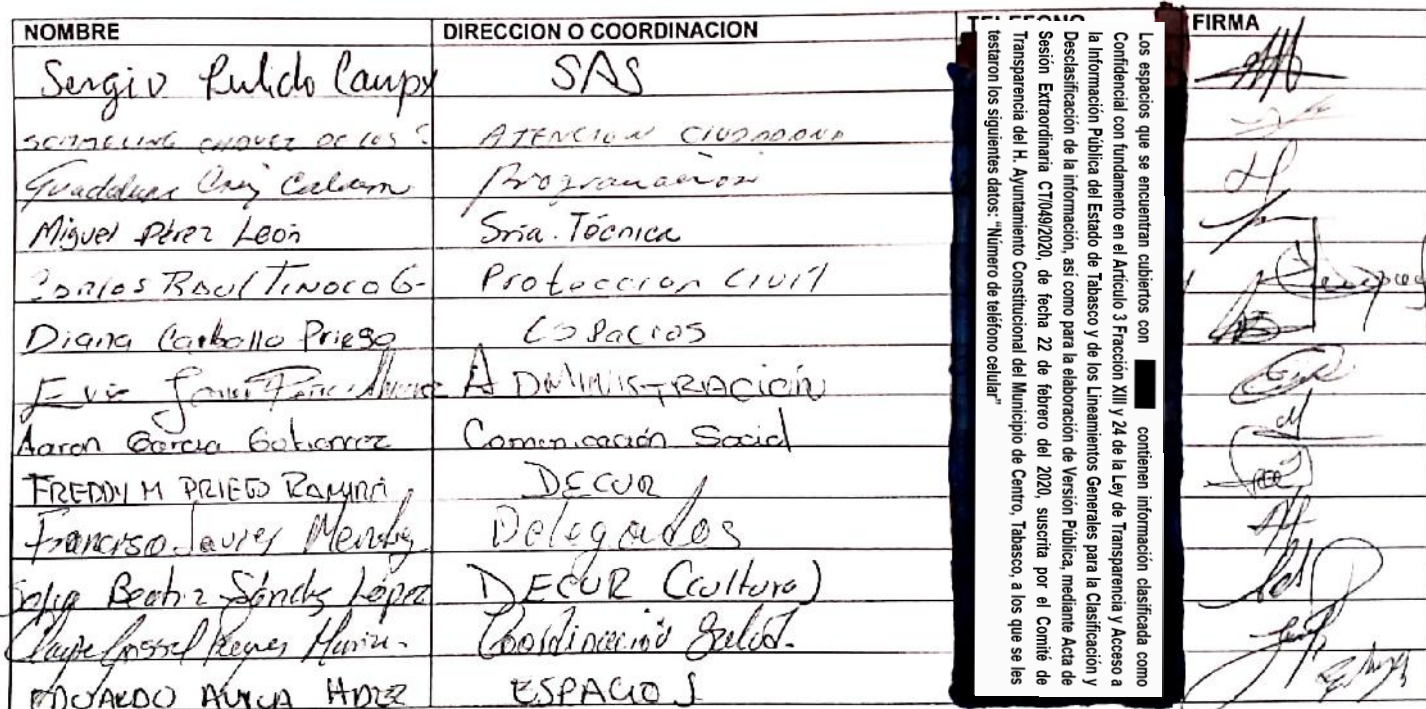 NOMBRE DIRECCION O COORDINACION TELEFONO FIRMA
Sergio Pulido Campy SAS
SCHMELING CHAVEZ DE LOS S ATENCION CIUDADANA
Guadalupe Cruz Programación
Miguel Pérez León Sria. Técnica
Carlos Raul Tinoco G- Protección Civil
Diana Carballo Priego Espacios
ADMINISTRACIÓN
Aaron Garcia Gutierrez Comunicación Social
FREDDY M PRIEGO RAMIREZ DECUR
Francisco Javier Mendez Delegados
Beatriz Sánchez López DECUR (cultura)
Reyes Coordinación Salud.
EDUARDO AVILA HDEZ ESPACIOS
Los espacios que se encuentran cubiertos con contienen información clasificada como
Confidencial con fundamento en el Artículo 3 Fracción XIII y 24 de la Ley de Transparencia y Acceso a
la Información Pública del Estado de Tabasco y de los Lineamientos Generales para la Clasificación y
Desclasificación de la información, así como para la elaboración de Versión Pública, mediante Acta de
Sesión Extraordinaria CT/049/2020, de fecha 22 de febrero del 2020, suscrita por el Comité de
Transparencia del H. Ayuntamiento Constitucional del Municipio de Centro, Tabasco, a los que se les
testaron los siguientes datos: "Número de teléfono celular"